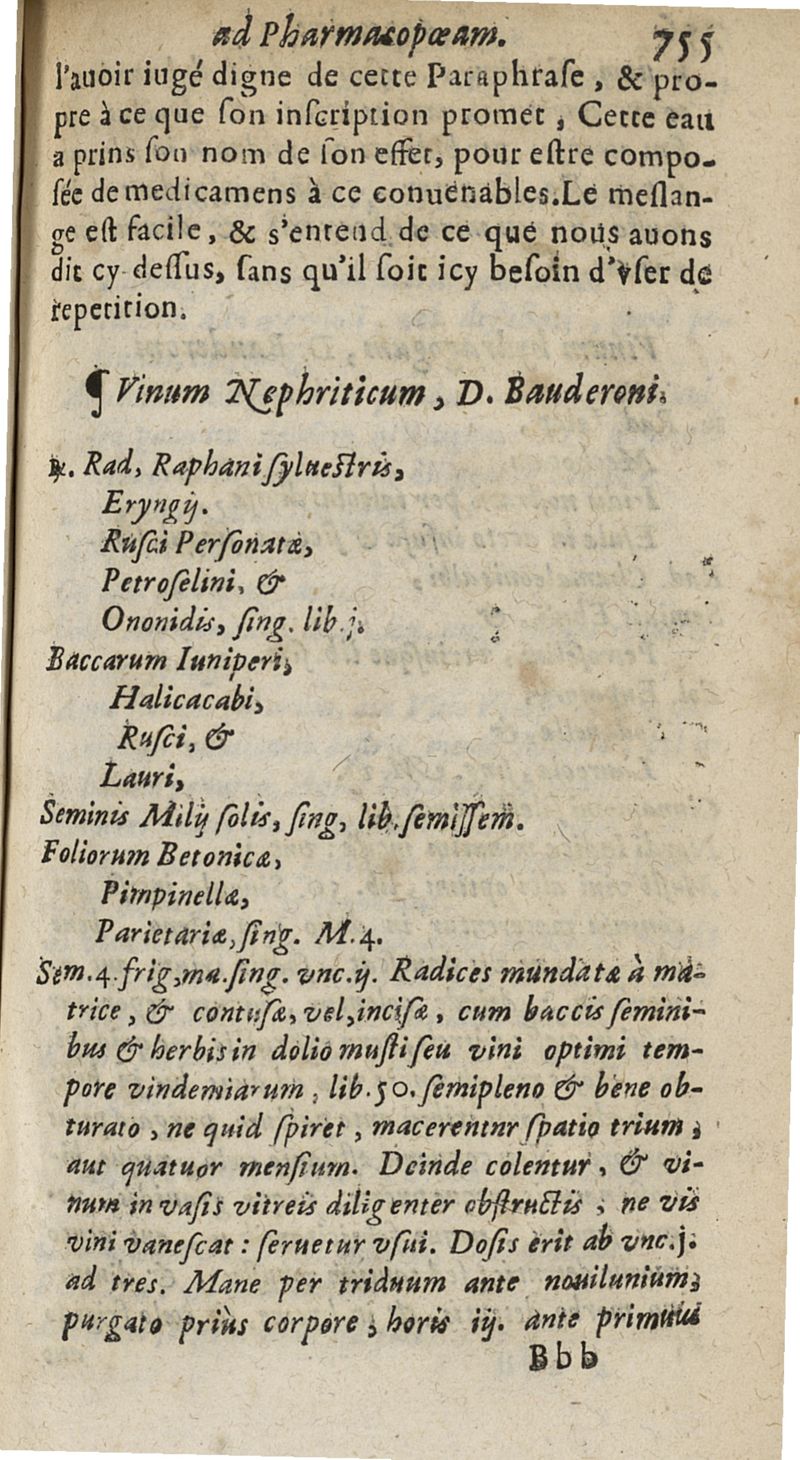 ad Pharmacopœam. 755
l'auoir iugé digne de cette Paraphraſe, & pro-
pre à ce que ſon inſcription promet, Cette eau
a prins ſon nom de ſon effet, pour eſtre compo-
ſée de medicamens à ce conuenables. Le meſlan-
ge eſt facile, & s'entend de ce que nous auons
dit cy deſſus, ſans qu'il ſoit icy beſoin d'vſer de
repetition.
¶ Vinum Nephriticum, D. Bauderoni.
℞. Rad, Raphani ſylueſtris,
Eryngij.
Ruſci Perſonatæ,
Petroſelini, &
Ononidis, ſing. lib.j.
Baccarum Iuniperi,
Halicacabi,
Ruſci, &
Lauri,
Seminis Milij ſolis, ſing, lib. ſemiſſem.
Foliorum Betonicæ,
Pimpinellæ,
Parietariæ, ſing. M.4.
Sem.4.frig,ma.ſing. vnc.ij. Radices mundatæ à ma-
trice, & contuſæ, vel,inciſæ, cum baccis ſemini-
bus & herbis in dolio muſti ſeu vini optimi tem-
pore vindemiarum, lib.50. ſemipleno & bene ob-
turato, ne quid ſpiret, macerentur ſpatio trium,
aut quatuor menſium. Deinde colentur, & vi-
num in vaſis vitreis diligenter obſtructis, ne vis
vini vaneſcat : ſeruetur vſui. Doſis erit ab vnc.j.
ad tres. Mane per triduum ante nouilunium,
purgato priùs corpore, horis iij. ante primum
Bbb